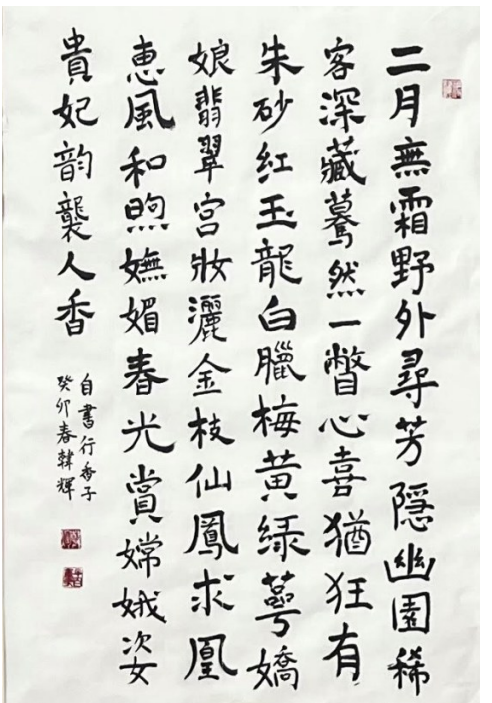 二月無霜野外尋芳隱幽園稀
客深藏驀然一瞥心喜猶狂有
朱砂紅玉龍白臘梅黃绿萼嬌
娘翡翠宫妝灑金枝仙鳳求凰
惠風和煦嫵媚春光賞嫦娥姿
貴妃韵襲人香
自書行香子
癸卯春韓輝